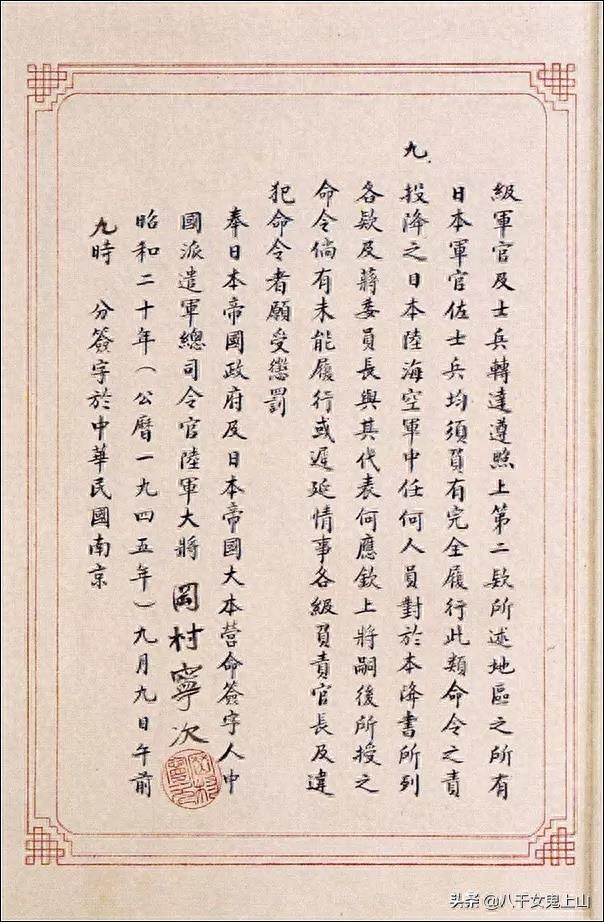 級軍官及士兵轉達遵照上第二欵所述地區之所有
日本軍官佐士兵均須負有完全履行此類命令之責
九、投降之日本陸海空軍中任何人員對於本降書所列
各欵及蔣委員長與其代表何應欽上將嗣後所授之
命令倘有未能履行或遲延情事各級負責官長及違
犯命令者願受懲罰
奉日本帝國政府及日本帝國大本營命簽字人中
國派遣軍總司令官陸軍大將 岡村寧次
昭和二十年(公曆一九四五年)九月九日午前
九時 分簽字於中華民國南京
头条 @八千女鬼上山